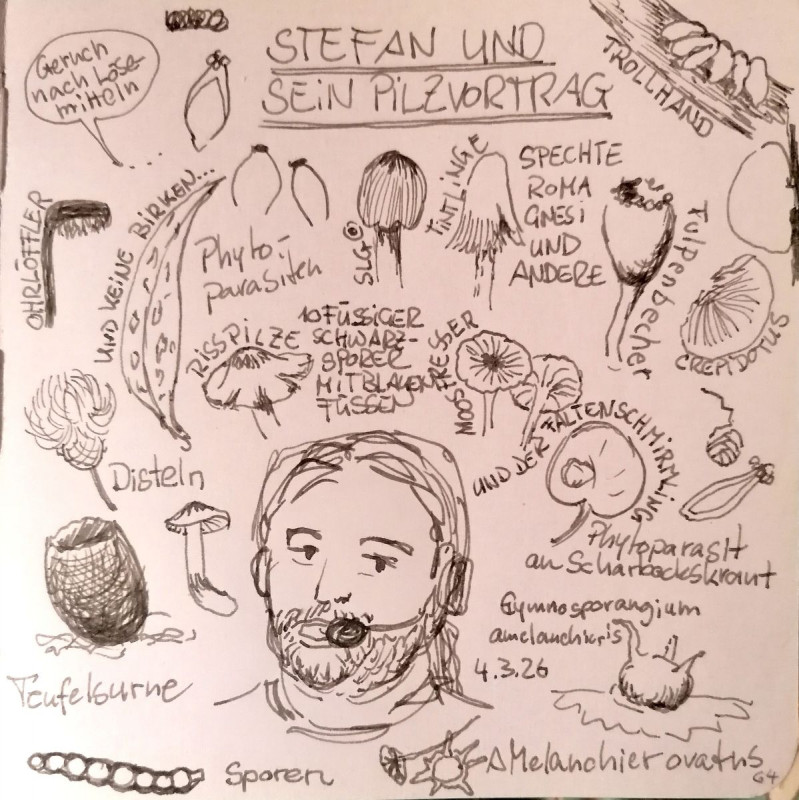 Geruch
nach Löse-
mitteln
STEFAN UND
SEIN PILZVORTRAG
TROLLHAND
OHRLÖFFLER
UND KEINE BIRKEN...
Phyto-
parasiten
SLG®
TINTLINGE
SPECHTE
ROMA
GNESI
UND
ANDERE
Tulpenbecher
CREPIDOTUS
RISSPILZE
10FÜSSIGER
SCHWARZ-
SPORER
MIT BLAUEN
FÜSSEN
MOOSFRESSER
UND DER FALTENSCHMIRMLING
Disteln
Phytoparasit
an Scharbockskraut
Gymnosporangium
amelanchieris
4.3.26
Teufelsurne
Sporen
AMelanchier ovatus
G4